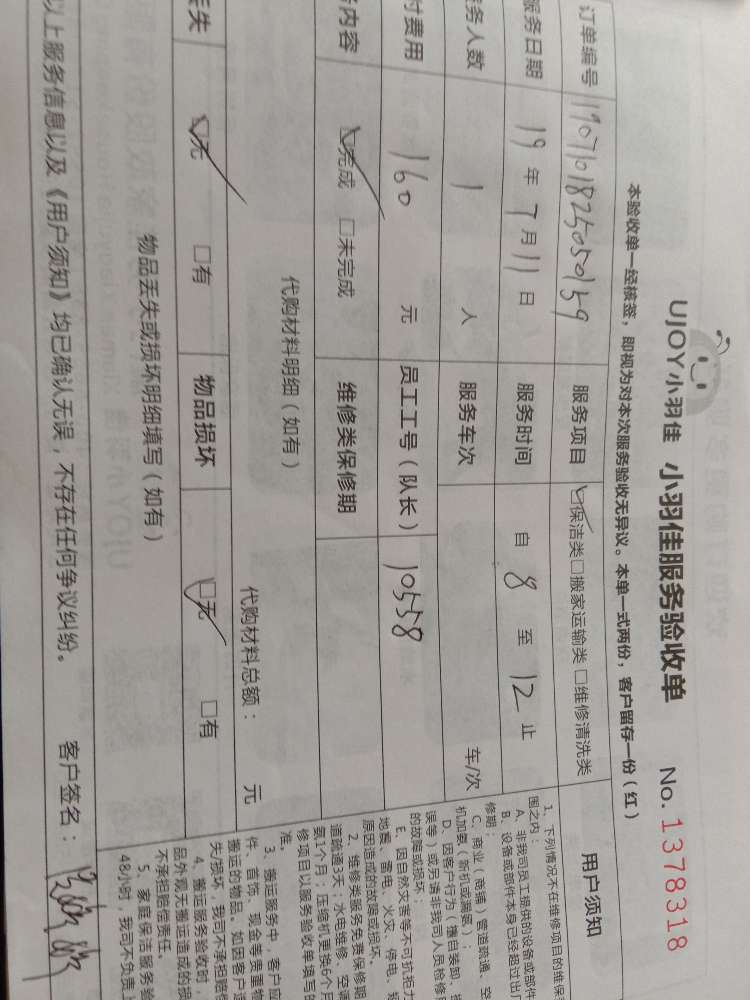 UJOY小羽佳 小羽佳服务验收单 No. 1378318
本验收单一经核签，即视为对本次服务验收无异议。本单一式两份，客户留存一份（红）
订单编号 1907101825050159 服务项目 保洁类□搬家运输类□维修清洗类
服务日期 19年7月11日 服务时间 自8至12止
务人数 1 人 服务车次 车/次
付费用 160 元 员工工号（队长） 10558
务内容 完成 □未完成 维修类保修期
代购材料明细（如有）
代购材料总额： 元
丢失 无 □有 物品损坏 无 □有
物品丢失或损坏明细填写（如有）
以上服务信息以及《用户须知》均已确认无误，不存在任何争议纠纷。 客户签名：
用户须知
1、下列情况不在维修项目的维保
围之内：
A、非我司员工提供的设备或部件
B、设备或部件本身已经超过出厂
修期；
C、商业（商铺）管道疏通、空
机加氨（新机或漏氨）；
D、因客户行为（擅自装卸、
误等）或另请非我司人员检修
的故障或损坏；
E、因自然灾害等不可抗拒力
地震、雷电、火灾、停电、
原因造成的故障或损坏。
2、维修类服务免费保修期
道疏通3天；水电维修、空调
氨1个月；压缩机更换6个月
修项目以服务验收单填写的
准。
3、搬运服务中，客户应
件、首饰、现金等贵重物
搬运的物品。如因客户
失/损坏，我司不承担赔
4、搬运服务验收时，
品外观无搬运造成的损
不承担赔偿责任。
5、家庭保洁服务验
48小时，我司不负责